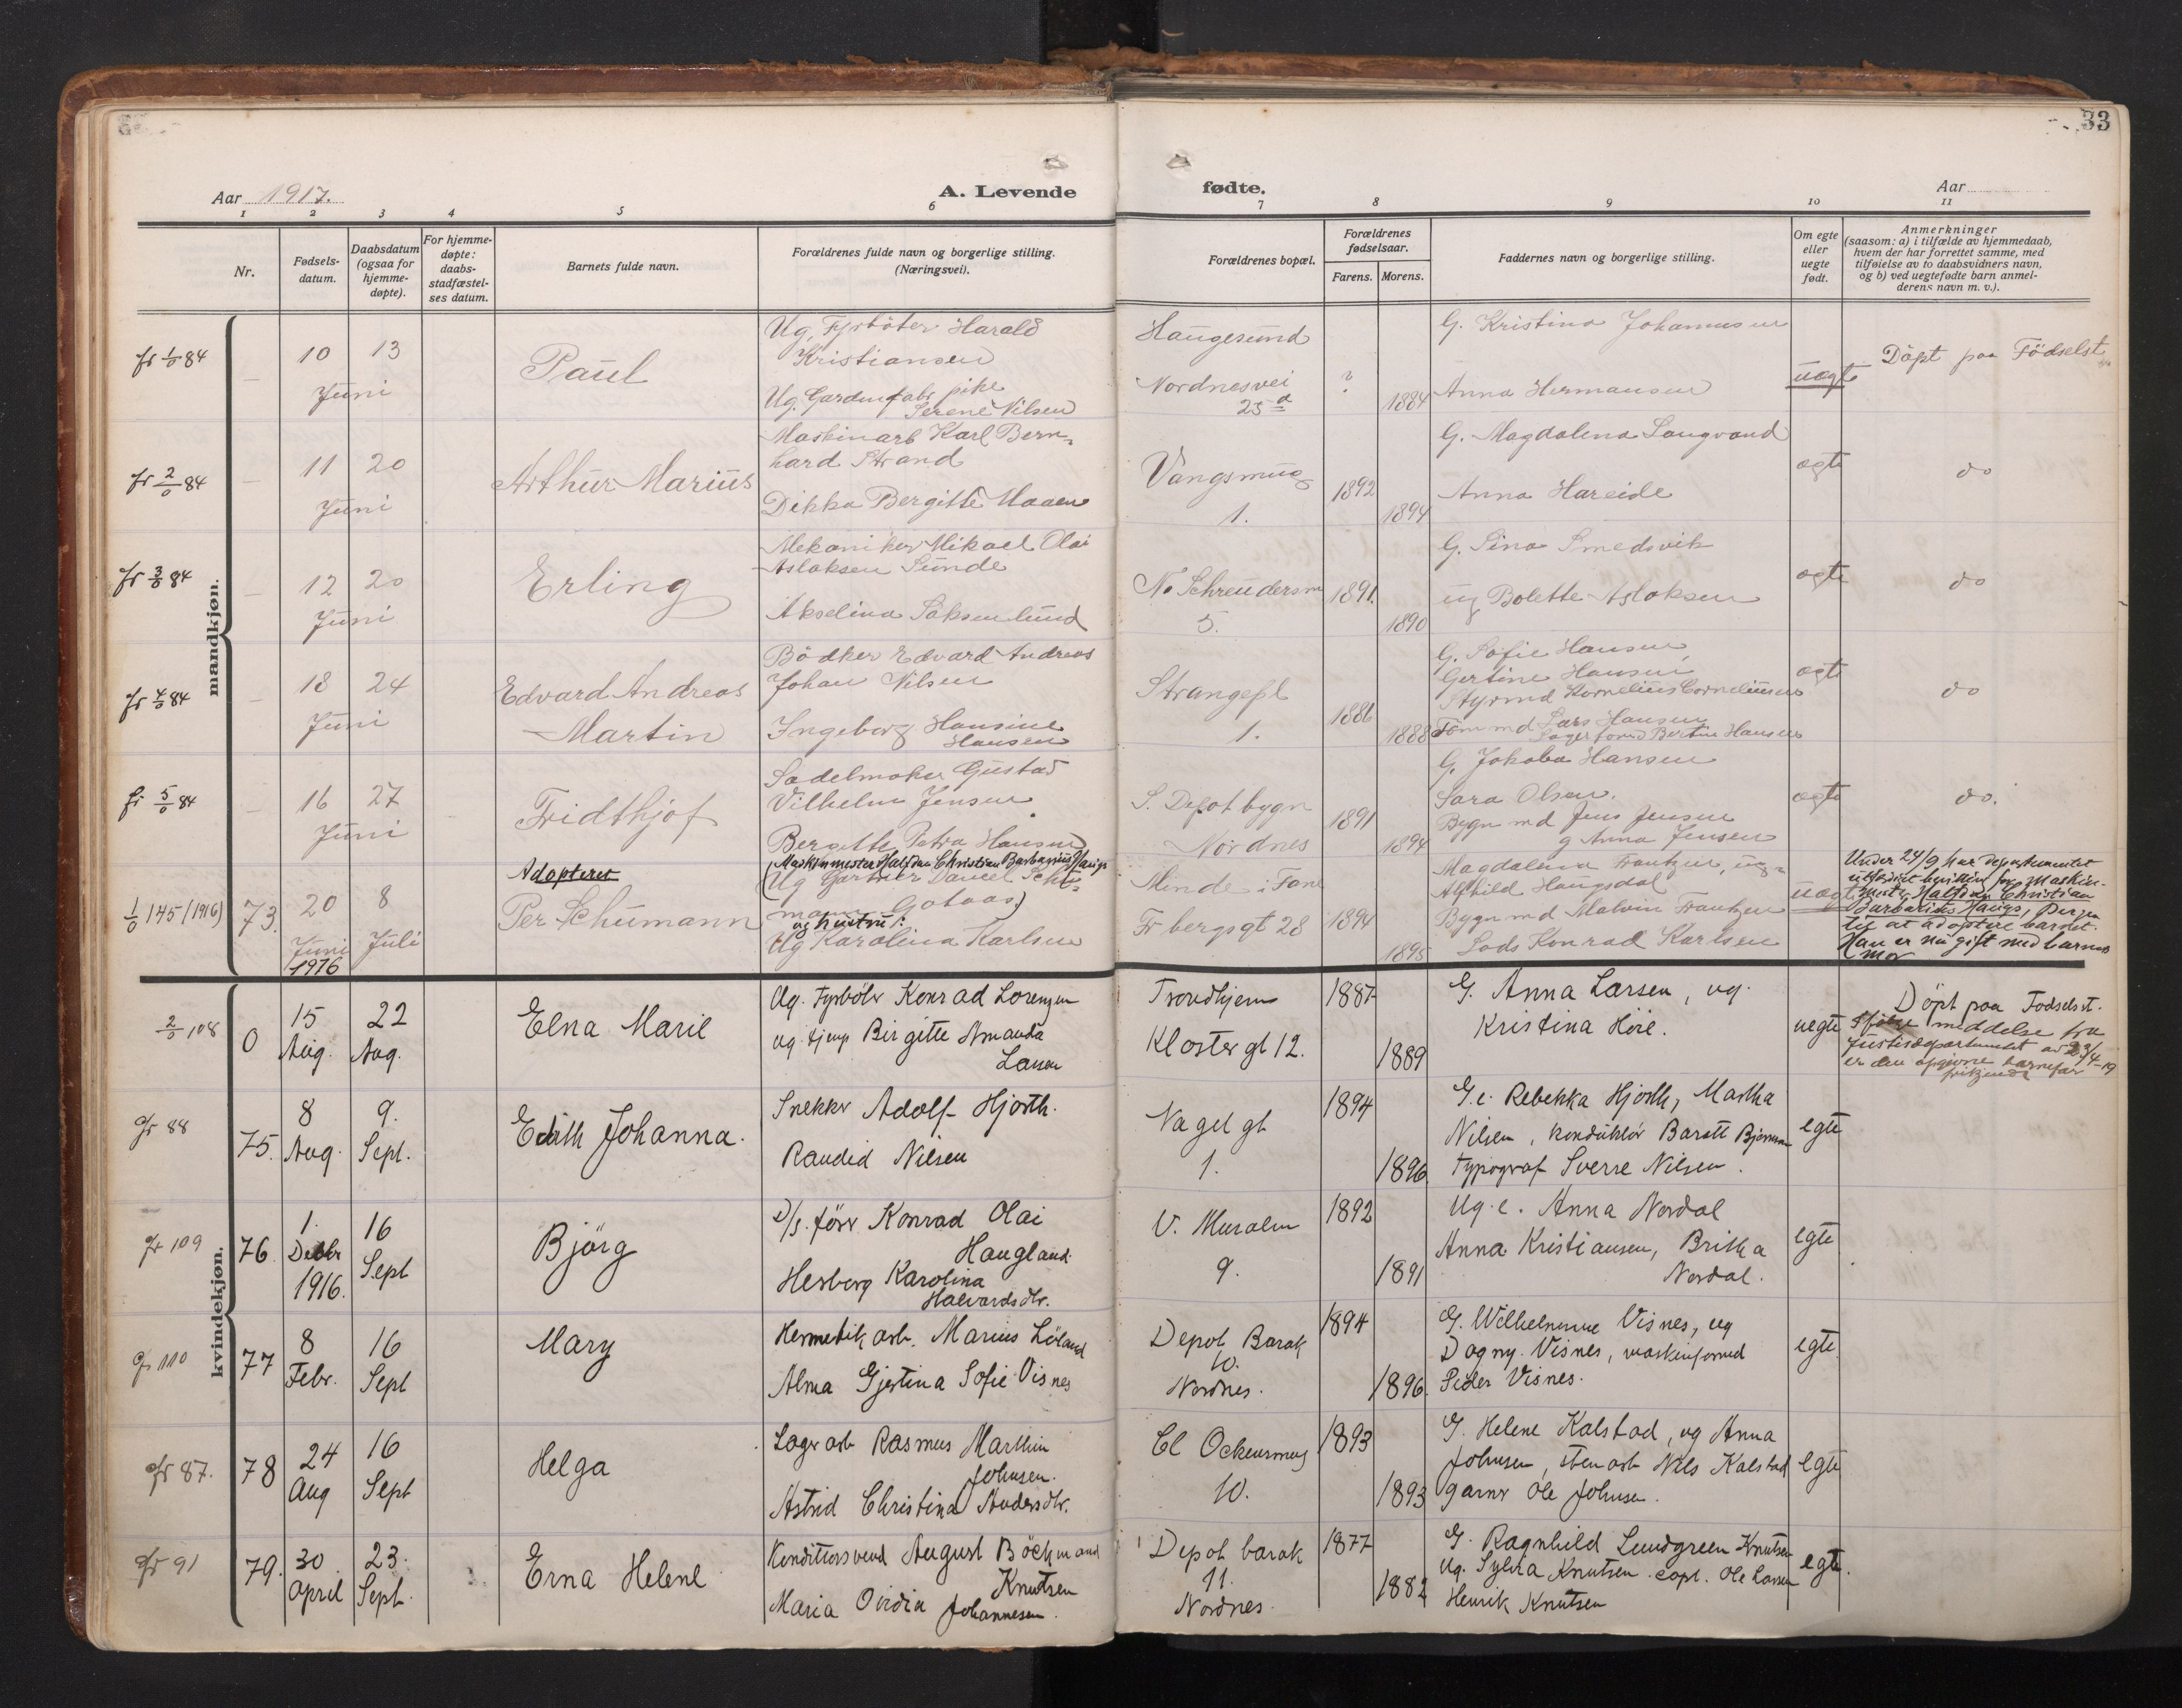 33
Aar 1917.
A. Levende
fødte.
Aar
1 2 3 4 5 6 7 8 9 10 11
Nr.
Fødsels-
datum.
Daabsdatum
(ogsaa for
hjemme-
døpte).
For hjemme-
døpte:
daabs-
stadfæstel-
ses datum.
Barnets fulde navn.
Forældrenes fulde navn og borgerlige stilling.
(Næringsvei).
Forældrenes bopæl.
Forældrenes
fødselsaar.
Farens. Morens.
Faddernes navn og borgerlige stilling.
Om egte
eller
uegte
født.
Anmerkninger
(saasom: a) i tilfælde av hjemmedaab,
hvem der har forrettet samme, med
tilføielse av to daabsvidners navn,
og b) ved uegtefødte barn anmel-
derens navn m. v.).
mandkjøn.
fr 1/0 84
10 Juni
13
Paul
Ug. Fyrböter Harald
Kristiansen
Ug. Gardinfabr pike
Serene Nilsen
Haugesund
Nordnesvei
25 a
?
1884
G. Kristina Johannesen
Anna Hermansen
uegte
Döpt paa Födselst
fr 2/0 84
11 Juni
20
Arthur Marius
Maskinarb Karl Bern-
hard Strand
Dikka Bergitte Maaen
Vangsmug
1.
1892
1894
G. Magdalena Langvand
Anna Hareide
egte
do
fr 3/0 84
12 Juni
20
Erling
Mekaniker Mikael Olai
Aslaksen Sunde
Akselina Saksenlund
No Schreudersm
5.
1891.
1890
G. Sina Smedsvik
ug Bolette Aslaksen
egte
do
fr 4/0 84
18 Juni
24
Edvard Andreas
Martin
Bödker Edvard Andreas
Johan Nilsen
Ingeborg Hansine
Hansen
Strangepl
1.
1886
1888
G. Sofie Hansen,
Gertine Hansen
Styrmd Kornelius Corneliusen
Töm md Lars Hansen
Lagerformd Bertin Hansen
egte
do
fr 5/0 84
16 Juni
27
Fridthjof
Sadelmaker Gustav
Vilhelm Jensen
Bergitte Petra Hansen
S. Depotbygn
Nordnes
1891
1894
G. Jakoba Hansen
Sara Olsen.
Bygn md Jens Jensen
g Anna Jensen
egte
do.
1/0 145 (1916)
73.
20
Juni
1916
8
Juli
Adopteret
Per Schumann
(Maskinmester Halfdan Christian Barbarius Haugs
Ug Gartner Daniel Schu-
mann Gotaas)
og hustru:
Ug Karolina Karlsen
Minde i Fane
Fr bergsgt 28
1894
1895
Magdalena Frantzen, ug-
Alfhild Haugsdal
Bygn md Malvin Frantzen
Lods Konrad Karlsen
uegte
Under 24/9 har departementet
utfærdiget bevilling for Maskin-
mester Halfdan Christian
Barbarius Haugs,
til at adoptere barnet.
Han er nu gift med barnets
mor
kvindekjøn.
2/0 108
0
15
Aug.
22
Aug.
Elna Marie
Ug. Fyrböter Konrad Lorenzen
ug. tjenp Birgitte Amanda
Larsen
Trondhjem
Klostergt 12.
1887
1889
G. Anna Larsen, ug.
Kristina Höie.
uegte
Döpt paa Fodselsst.
Ifølge meddelse fra
Justisdepartementet av 23/4-19
er den opgivne barnefar
frikjendt
fr 88
75.
8
Aug.
9.
Sept.
Edith Johanna.
Snekker Adolf Hjorth.
Randid Nilsen
Nagelgt
1.
1894
1896
G.e. Rebekka Hjorth, Martha
Nilsen, konduktör Barött Björnsen
Typograf Sverre Nilsen.
egte
fr 109
76
1.
Decbr
1916.
16
Sept
Björg
D/s. förer Konrad Olai
Haugland
Herborg Karolina
Halvardsdtr.
V. Muralm
9.
1892
1891
Ug.e. Anna Nordal
Anna Kristiansen, Britha
Nordal.
egte
fr 110
77
8
Febr.
16
Sept
Mary
Hermetik arb. Marius Löland
Alma Gjertina Sofie Visnes
Depot Barak
10.
Nordnes.
1894
1896.
G. Wilhelmine Visnes, ug
Dagny. Visnes, maskinformd
Peder Visnes.
egte
fr 87.
78
24
Aug
16
Sept
Helga
Lager arb Rasmus Marthin
Johnsen.
Astrid Christina Andersdtr.
Cl Ockensmug
10.
1893
1893
G. Helene Kalstad, ug Anna
Johnsen, stenarb Nils Kalstad
garner Ole Johnsen.
egte
fr 91
79.
30
April
23.
Sept.
Erna Helene
Konditorsvend August Böckmand
Knutsen
Maria Ovidia Johannesen.
Depot barak
11.
Nordnes.
1877
1882
G. Ragnhild Lundgreen Knutsen
Ug. Sylvia Knutsen. Capt. Ole Larsen
Henrik Knutsen
egte.